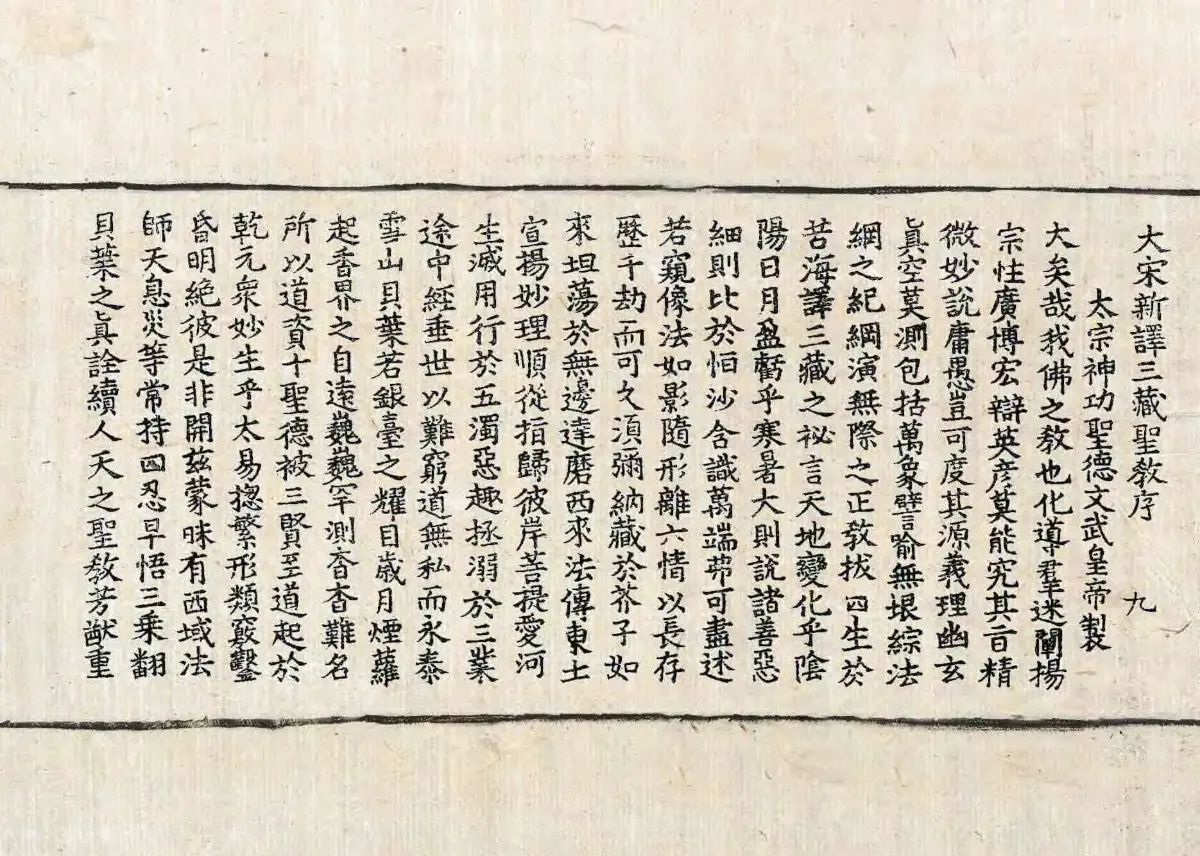 大宋新譯三藏聖教序　九
太宗神功聖德文武皇帝製
大矣哉我佛之教也化導羣迷闡揚
宗性廣博宏辯英彦莫能究其旨精
微妙說庸愚豈可度其源義理幽玄
眞空莫測包括萬象譬喻無垠綜法
網之紀綱演無際之正教拔四生於
苦海譯三藏之祕言天地變化乎陰
陽日月盈虧乎寒暑大則說諸善惡
細則比於恒沙含識萬端弗可盡述
若窺像法如影隨形離六情以長存
歷千劫而可久湏彌納藏於芥子如
來坦蕩於無邊達磨西來法傳東土
宣揚妙理順從指歸彼岸菩提愛河
生滅用行於五濁惡趣拯溺於三業
途中經垂世以難窮道無私而永泰
雪山貝葉若銀臺之耀目歲月煙蘿
起香界之自遠巍巍罕測杳杳難名
所以道資十聖德被三賢至道起於
乾元衆妙生乎太易揔繁形類竅鑿
昏明絕彼是非開茲蒙昧有西域法
師天息災等常持四忍早悟三乘翻
貝葉之眞詮續人天之聖教芳猷重